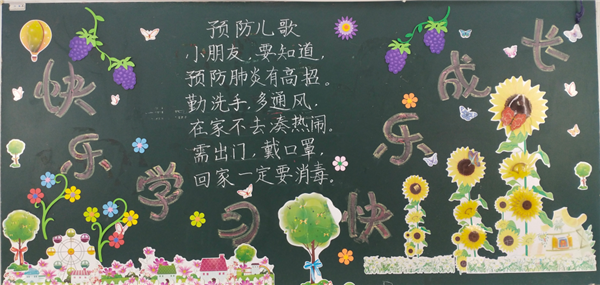 快乐学习
预防儿歌
小朋友，要知道，
预防肺炎有高招。
勤洗手，多通风，
在家不去凑热闹。
需出门，戴口罩，
回家一定要消毒。
快乐成长